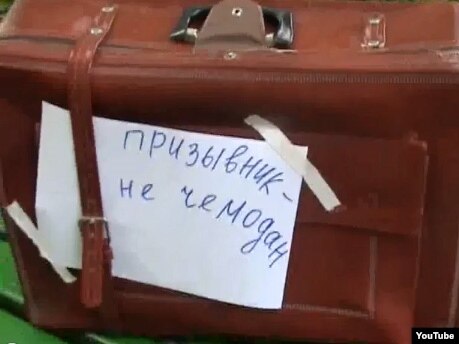 призывник-
не чемодан
YouTube